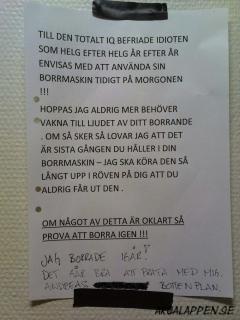 TILL DEN TOTALT IQ BEFRIADE IDIOTEN
SOM HELG EFTER HELG ÅR EFTER ÅR
ENVISAS MED ATT ANVÄNDA SIN
BORRMASKIN TIDIGT PÅ MORGONEN
!!!
HOPPAS JAG ALDRIG MER BEHÖVER
VAKNA TILL LJUDET AV DITT BORRANDE
. OM SÅ SKER SÅ LOVAR JAG ATT DET
ÄR SISTA GÅNGEN DU HÅLLER I DIN
BORRMASKIN – JAG SKA KÖRA DEN SÅ
LÅNGT UPP I RÖVEN PÅ DIG ATT DU
ALDRIG FÅR UT DEN .
OM NÅGOT AV DETTA ÄR OKLART SÅ
PROVA ATT BORRA IGEN !!!
JAG BORRADE IGÅR!
DET GÅR BRA ATT PRATA MED MIG.
ANDREAS BOTTENPLAN.
ARGALAPPEN.SE